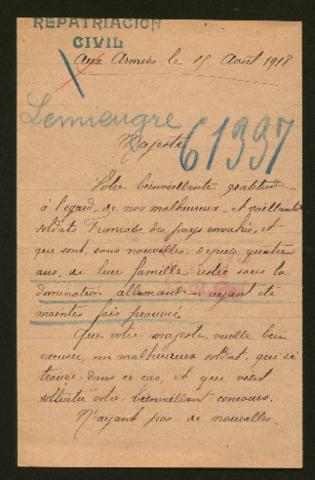 REPATRIACION
CIVIL
Aux Armées le 15 Août 1918
Lemiengre
61337
Majesté
Votre bienveillante gratitude
à l'égard, de nos malheureux, et vaillants
soldats Français, des pays envahis, et
qui sont, sans nouvelles, depuis quatre
ans, de leur famille restée sous la
domination allemande ayant été
maintes fois prouvée.
Que votre majesté, veuille bien
excuser, un malheureux soldat, qui se
trouve, dans ce cas, et qui vient
solliciter votre bienveillant concours.
N'ayant pas de nouvelles.